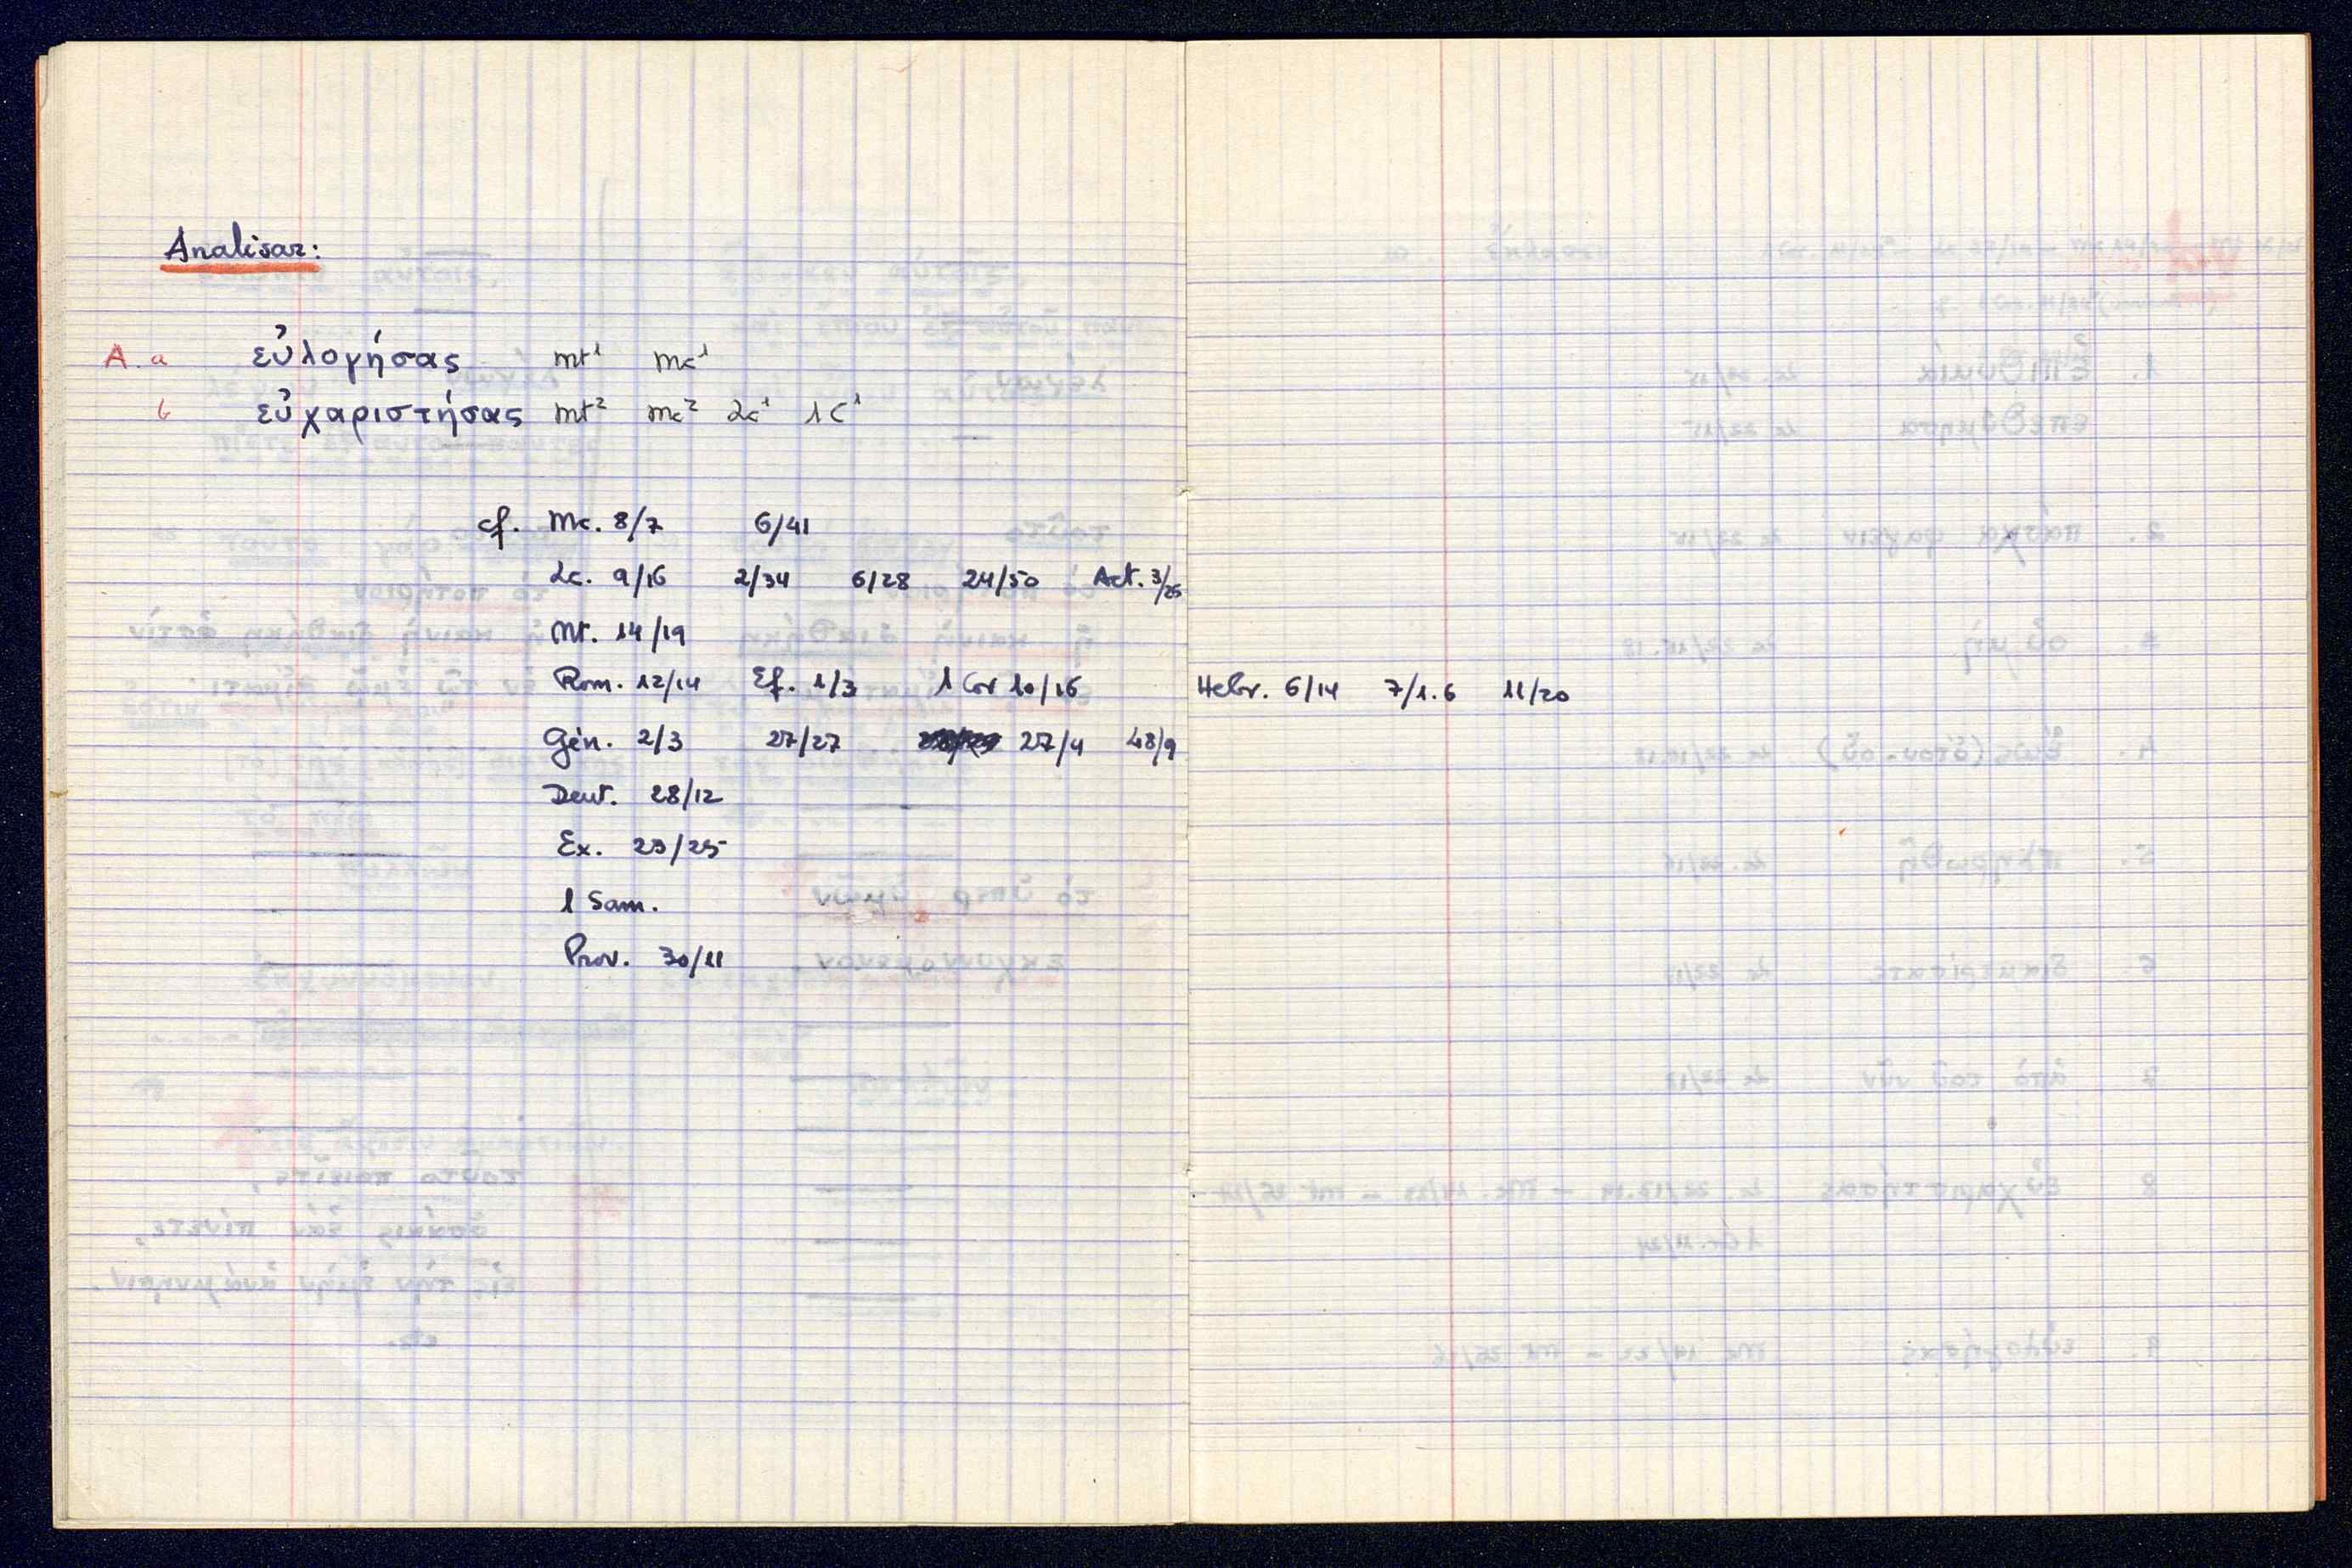 Analisar:
A. a εὐλογήσας Mt¹ Mc¹
b εὐχαριστήσας Mt² Mc² Lc¹ 1C¹
cf. Mc. 8/7 6/41
Lc. 9/16 2/34 6/28 24/50 Act. 3/26
Mt. 14/19
Rom. 12/14 Ef. 1/3 1 Cor 10/16 Hebr. 6/14 7/1.6 11/20
Gén. 2/3 27/27 27/4 48/9
Deut. 28/12
Ex. 23/25
1 Sam.
Prov. 30/11